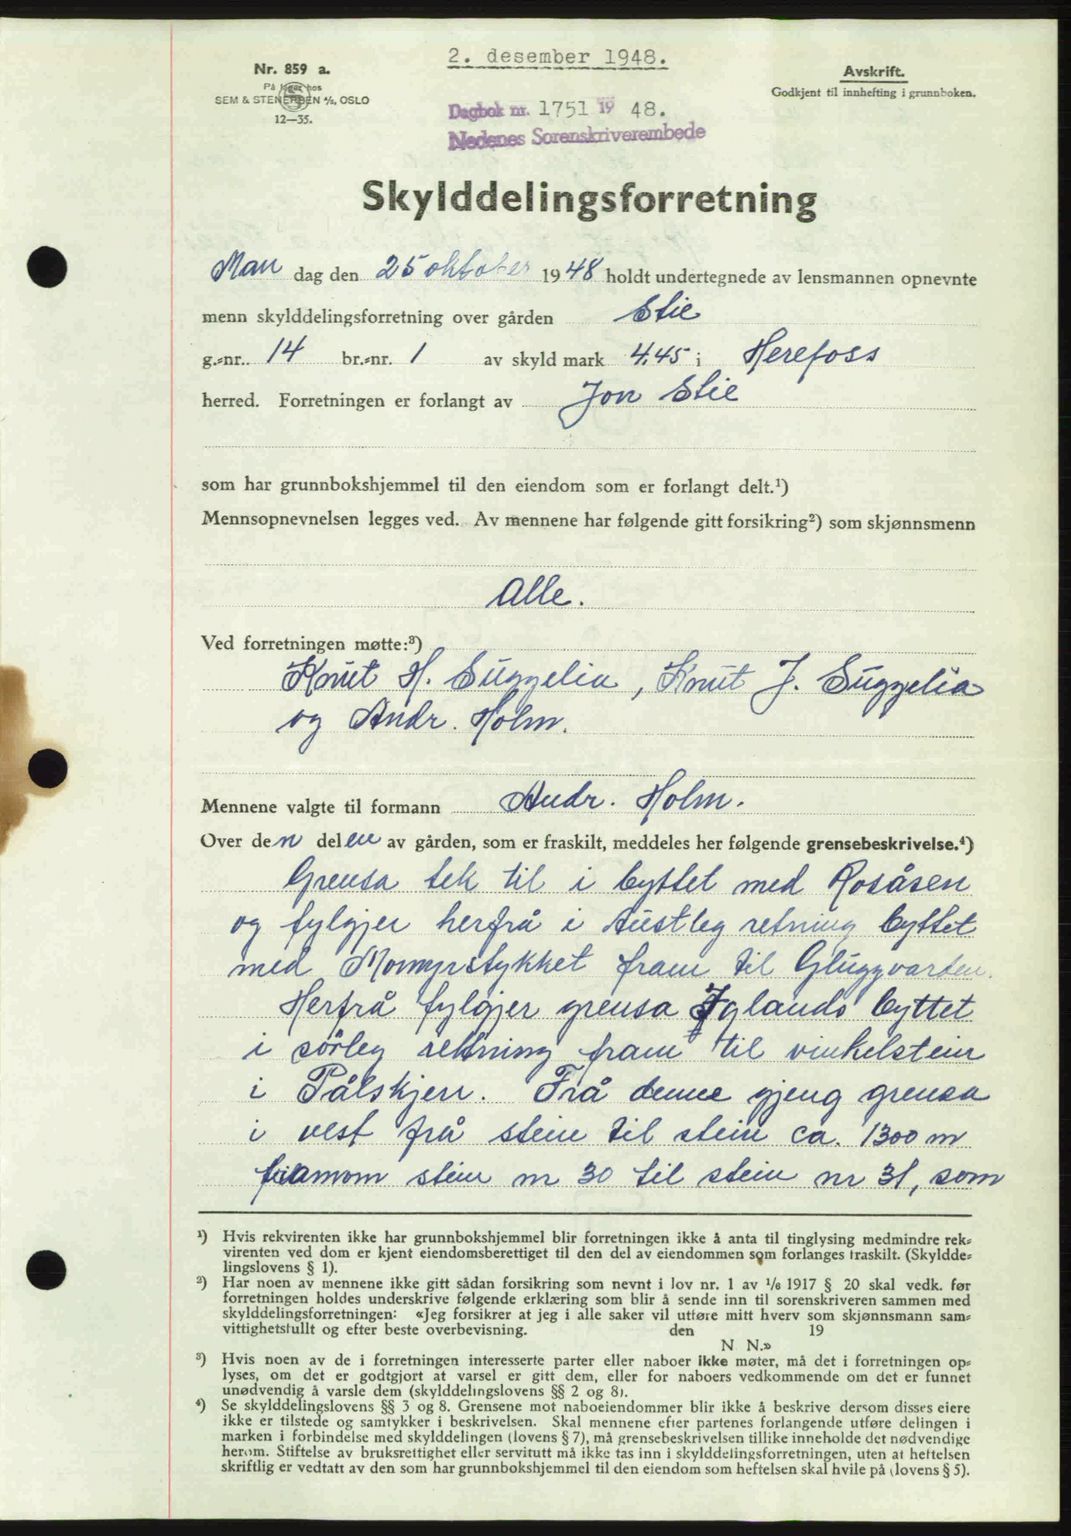 2. desember 1948.
Nr. 859 a.
På lager hos
SEM & STENERSEN A/S, OSLO
12—35.
Avskrift.
Godkjent til innhefting i grunnboken.
Dagbok nr. 1751 19 48.
Nedenes Sorenskriverembede
Skylddelingsforretning
Man dag den 25 oktober 1948 holdt undertegnede av lensmannen opnevnte
menn skylddelingsforretning over gården Stie
g.-nr.. 14 br.-nr. 1 av skyld mark 4.45 i Herefoss
herred. Forretningen er forlangt av Jon Stie
som har grunnbokshjemmel til den eiendom som er forlangt delt.¹)
Mennsopnevnelsen legges ved. Av mennene har følgende gitt forsikring²) som skjønnsmenn
Alle.
Ved forretningen møtte:³)
Knut H. Suggelia, Knut J. Suggelia
og Andr. Holm.
Mennene valgte til formann Andr. Holm.
Over den delen av gården, som er fraskilt, meddeles her følgende grensebeskrivelse.⁴)
Grensa tek til i byttet med Rosåsen
og fylgjer herfrå i Austleg retning byttet
med Momyrstykket fram til Gluggvarden.
Herfrå fylgjer grensa Iglands byttet
i sörleg retning fram til vinkelstein
i Pålskjerr. Frå denne gjeng grensa
i vest frå stein til stein ca. 1300 m
stein nr 30 til stein nr 31, som
¹) Hvis rekvirenten ikke har grunnbokshjemmel blir forretningen ikke å anta til tinglysing medmindre rek-
virenten ved dom er kjent eiendomsberettiget til den del av eiendommen som forlanges fraskilt. (Skyldde-
lingslovens § 1).
²) Har noen av mennene ikke gitt sådan forsikring som nevnt i lov nr. 1 av 1/6 1917 § 20 skal vedk. før
forretningen holdes underskrive følgende erklæring som blir å sende inn til sorenskriveren sammen med
skylddelingsforretningen: «Jeg forsikrer at jeg i alle saker vil utføre mitt hverv som skjønnsmann sam-
vittighetsfullt og efter beste overbevisning. den 19
N N.»
³) Hvis noen av de i forretningen interesserte parter eller naboer ikke møter, må det i forretningen op-
lyses, om det er godtgjort at varsel er gitt dem, eller for naboers vedkommende om det er funnet
unødvendig å varsle dem (skylddelingslovens §§ 2 og 8).
⁴) Se skylddelingslovens §§ 3 og 8. Grensene mot naboeiendommer blir ikke å beskrive dersom disses eiere
ikke er tilstede og samtykker i beskrivelsen. Skal mennene efter partenes forlangende utføre delingen i
marken i forbindelse med skylddelingen (lovens § 7), må grensebeskrivelsen tillike inneholde det nødvendige
herom. Stiftelse av bruksrettighet eller servitutt må ikke tas inn i skylddelingsforretningen, uten at heftelsen
skriftlig er vedtatt av den som har grunnbokshjemmel til den eiendom som heftelsen skal hvile på (lovens § 5).